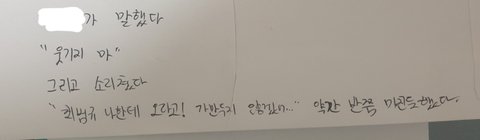 가 말했다
"웃기지 마"
그리고 소리쳤다
"최범규 나한테 오라고! 가만두지 않겠어..." 약간 반쯤 미곤듯했다.